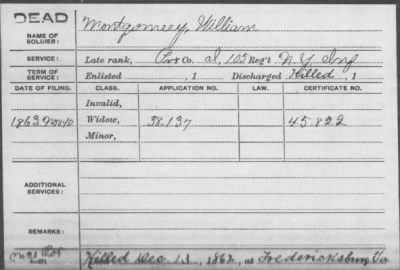 DEAD
Montgomery, William
NAME OF SOLDIER:
SERVICE: Late rank, Pvt Co. A, 105 Reg't N.Y. Inf
TERM OF SERVICE: Enlisted , 1 Discharged Killed , 1
DATE OF FILING. CLASS. APPLICATION NO. LAW. CERTIFICATE NO.
Invalid,
1863 Nov 10 Widow, 38.137 45.822
Minor,
ADDITIONAL SERVICES:
REMARKS:
Killed Dec. 13, 1862, at Fredericksburg Va